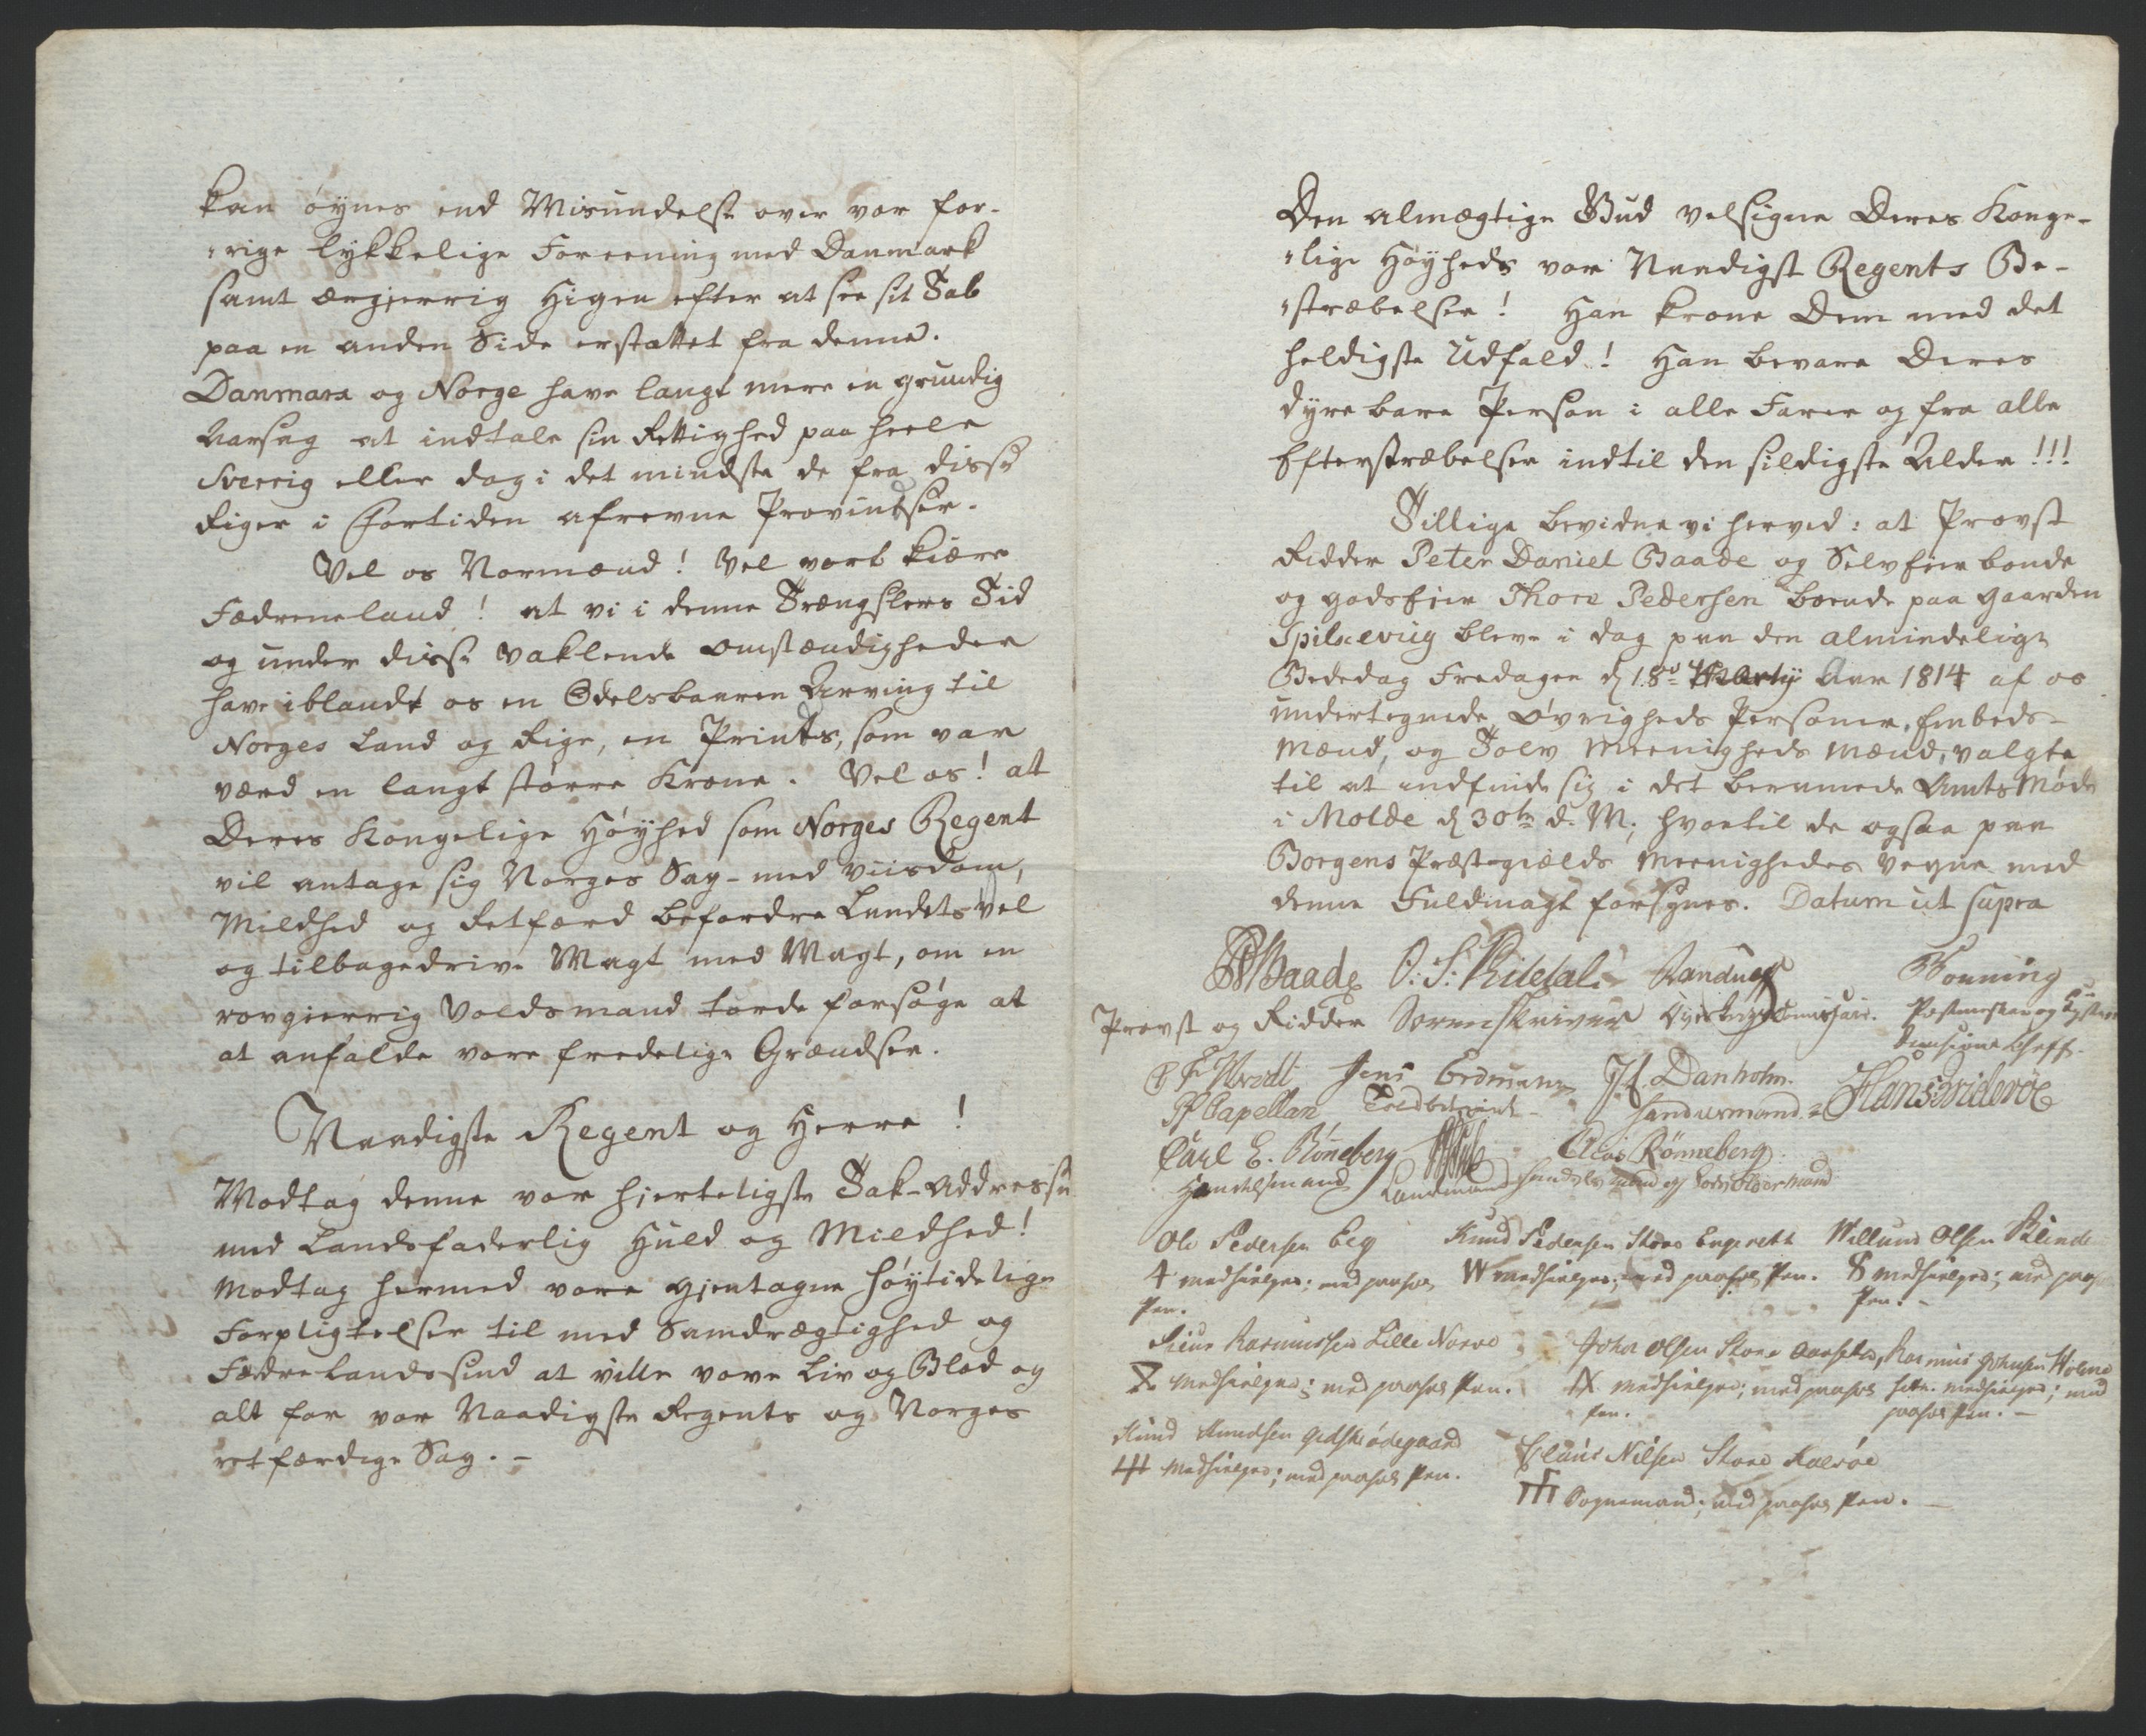 kan øynes end Misundelse over vor for-
„rige lykkelige Foreening med Danmark
samt ærgjerrig Higen efter at see sit Tab
paa en anden Side erstattet fra denne.
Danmark og Norge have langt mere en grundig
Aarsag at indtale sin Rettighed paa heele
Sverrig eller dog i det mindste de fra disse
Riger i Fortiden afrevne Provintser.
Vel os Normænd! Vel vort kiære
Fædreneland! at vi i denne Trængslers Tid
og under disse vaklende Omstændigheder
have iblandt os en Odelsbaaren Arving til
Norges Land og Rige, en Prints, som var
værd en langt større Krone. Vel os! at
Deres Kongelige Høyhed som Norges Regent
vil antage sig Norges Sag - med Viisdom,
Mildhed og Retfærd befordre Landets Vel
og tilbagedrive Magt med Magt, om en
rovgierrig Voldsmand torde forsøge at
at anfalde vore fredelige Grændser.
Naadigste Regent og Herre!
Modtag denne vor hierteligste Tak-Addresse
med Landsfaderlig Huld og Mildhed!
Modtag hermed vore gjentagne høytidelige
Forpligtelser til med Samdrægtighed og
Fædrelandssind at ville vove Liv og Blod og
alt for vor Naadigste Regents og Norges
retfærdige Sag. -
Den almægtige Gud velsigne Deres Konge-
„lige Høyheds vor Naadigst Regents Be-
„stræbelser! Han krone Dem med det
heldigste Udfald! Han bevare Deres
dyrebare Person i alle Farer og fra alle
Efterstræbelser indtil den sildigste Alder!!!
Tillige bevidne vi herved: at Provst
Ridder Peter Daniel Baade og Selveier bonde
og godseier Thore Pedersen boende paa Gaarden
Spilkevig bleve i dag paa den almindelige
Bededag Fredagen d 18de Martij Aar 1814 af os
undertegnede Øvrigheds Personer, Embeds-
Mænd, og Tolv Meenigheds Mænd, valgte
til at indfinde sig i det berammede Amts Møde
i Molde d 30te d. M; hvortil de ogsaa paa
Borgens Præstegiælds Meenighedes Vegne med
denne Fuldmagt forsynes. Datum ut supra
PDBaade O: S: Landmark Wonning
Provst og Ridder Sorenskriver Postmester og Kyst
Divisions Cheff.
Jens Erdmann J. Danholm. Hans
P Capellan Toldbetjent Handelsmand
Carl E. Rønneberg Claus Rønneberg
Handelsmand Landmand Handelsmand og
Ole Pedersen Eeg Knud Pedersen Store Willum Olsen Blinde
4 medhielper; med paaholden W medhielper; med paaholden Pen. 8 medhielper; med paah
Pen. Pen. -
Rasmussen Lille Norve John Olsen Store Aarseter, Rasmus Johnsen
medhielper; med paaholden Pen. medhielper; med paaholden medhielper; med
Pen. paaholden Pen. -
Knud Knudsen Gidske ødegaard Claus Nilsen Store Kalvøe
medhielper; med paaholden Pen. Sognemand; med paaholden Pen. -